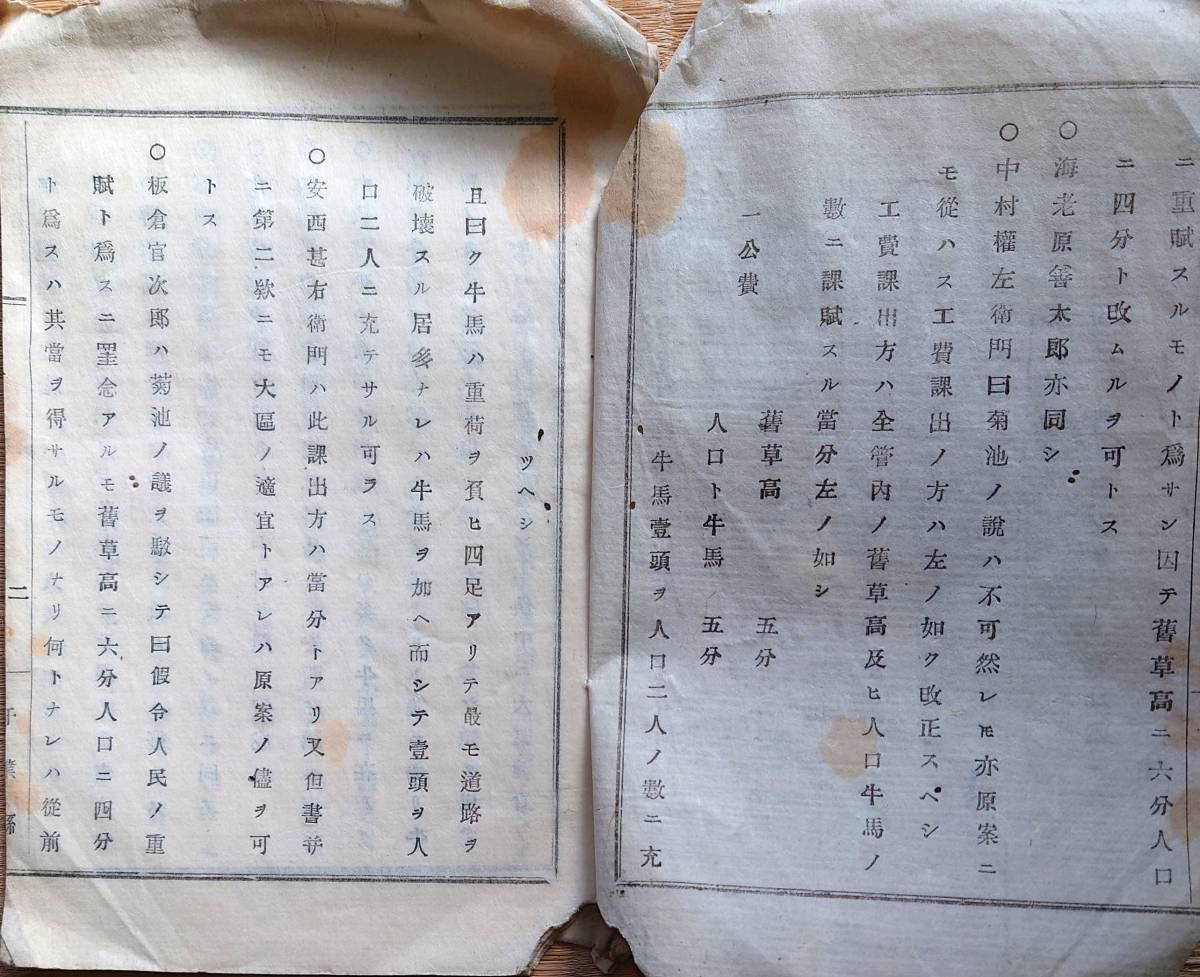 ニ重賦スルモノト爲サン因テ舊草高ニ六分人口
ニ四分ト改ムルヲ可トス
○海老原善太郎亦同シ
○中村權左衛門曰菊池ノ說ハ不可然レ𪜈亦原案ニ
モ從ハス工費課出ノ方ハ左ノ如ク改正スベシ
工費課出方ハ全管内ノ舊草高及ヒ人口牛馬ノ
數ニ課賦スル當分左ノ如シ
一公費
舊草高 五分
人口ト牛馬 五分
牛馬壹頭ヲ人口二人ノ數ニ充
ツヘシ
且曰ク牛馬ハ重荷ヲ負ヒ四足アリテ最モ道路ヲ
破壊スル居多ナレハ牛馬ヲ加ヘ而シテ壹頭ヲ人
口二人ニ充テサル可ラス
○安西甚右衛門ハ此課出方ハ當分トアリ又但書并
ニ第二欵ニモ大區ノ適宜トアレハ原案ノ儘ヲ可
トス
○板倉官次郎ハ菊池ノ議ヲ駁シテ曰假令人民ノ重
賦ト爲スニ罣念アルモ舊草高ニ六分人口ニ四分
ト爲スハ其當ヲ得サルモノナリ何トナレハ從前
二
千葉縣